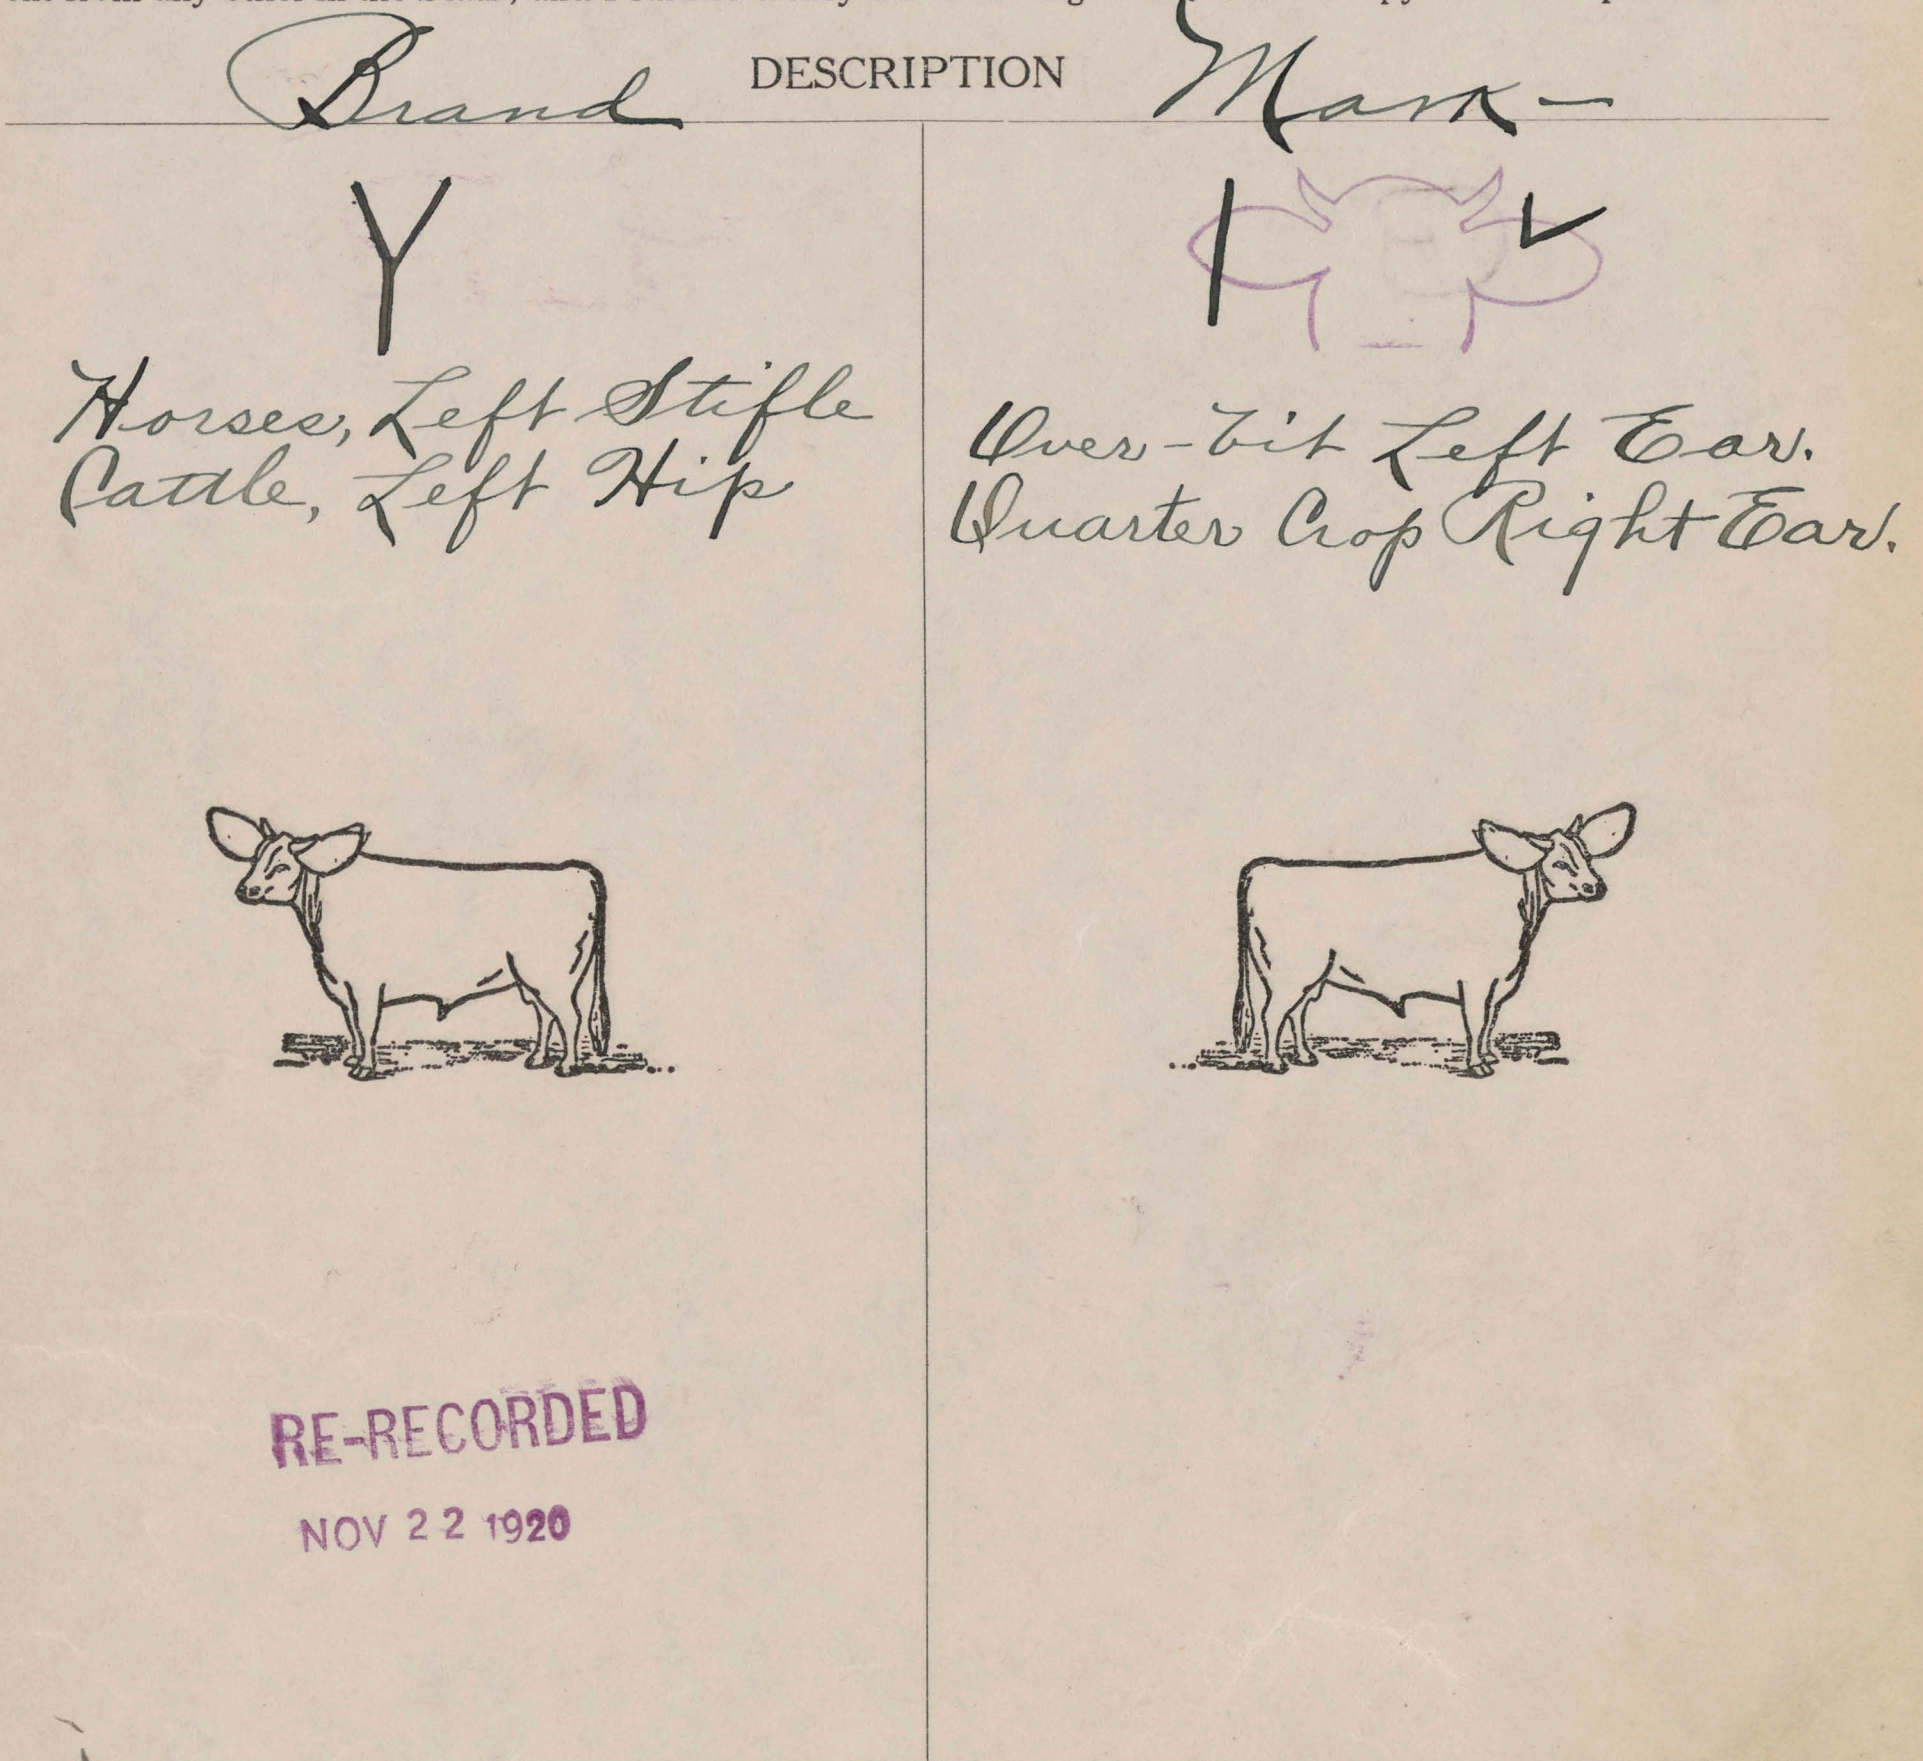 Brand DESCRIPTION Mark —
Y
Horses, Left Stifle
Cattle, Left Hip
Over-bit Left Ear.
Quarter Crop Right Ear.
RE-RECORDED
NOV 22 1920